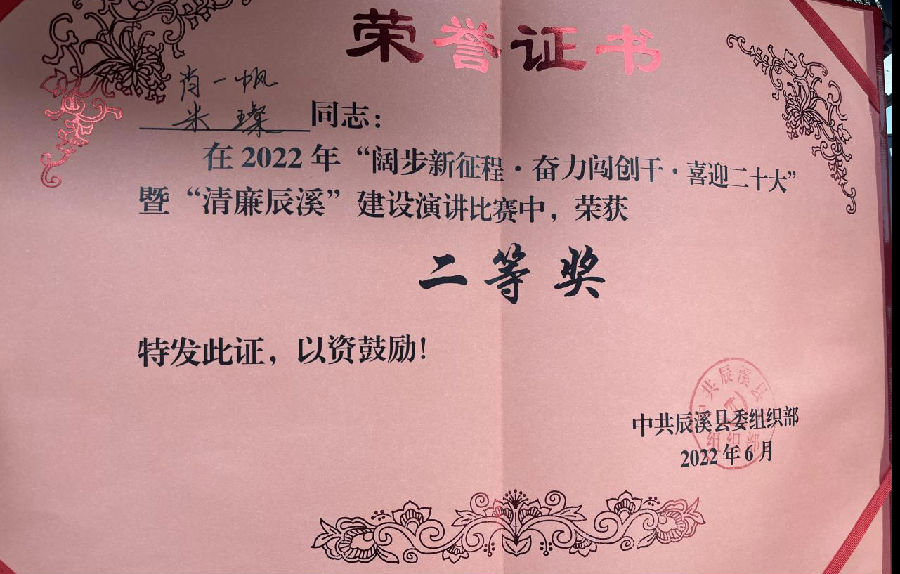 荣誉证书
肖一帆
米璨 同志：
在2022年“阔步新征程·奋力闯创干·喜迎二十大”
暨“清廉辰溪”建设演讲比赛中，荣获
二等奖
特发此证，以资鼓励！
中共辰溪县委组织部
2022年6月
中共辰溪县
组织部